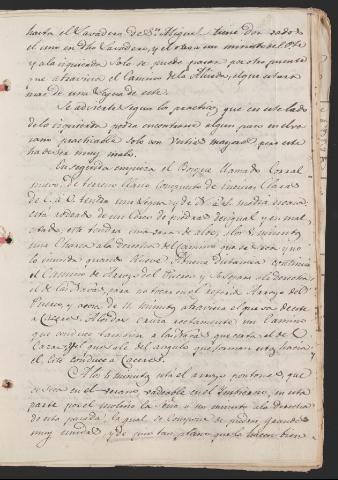 hasta el Lavadero de Sn. Miguel tiene dos vados
el uno en dho Lavadero, y el otro a un minuto del Ote
y a la izquierda Solo se puede pasar por otro puente
que atraviesa el Camino de la Aliseda, el que estará
mas de una Legua de este.
Se advierte segun los practicos, que en este lado
de la izquierda podra encontrarse algun paso en el ve-
rano practicable solo con Vestias mayores pero este
ha de ser muy malo.
En seguida empieza el Bosque llamado Corral
nuevo, de terreno llano Compuesto de nuevas Claras
de E. a O. tendra una legua y de N. a S. media escasa,
esta cercado de un Cerco de piedras desigual y en mal
estado, este tendra una vara de alto. A los minutos
una Charca a la derecha del camino que se seca y no
lo inunda quando llueve. A buena distancia continua
el Camino de Arroyo del Puerco y se separa a la derecha
el de las Navas, para no tocar en el referido Arroyo del
Puerco, y acerca de minuto atraviesa el que va de este
a Cáceres. A los dos cruza rectamente un Camino
que conduce tambien a las Navas que esta al de
Caras, y el que sale del angulo que forman estos hacia
el Este conduce a Caceres.
A los 6 minutos esta el arroyo pontones, que
se seca en el verano vadeable en el Imbierno, en esta
parte por el molino la seña a un minuto a la derecha
de esta parada, la qual se compone de piedras grandes
muy unidas y de que tan planas que la hacen bien